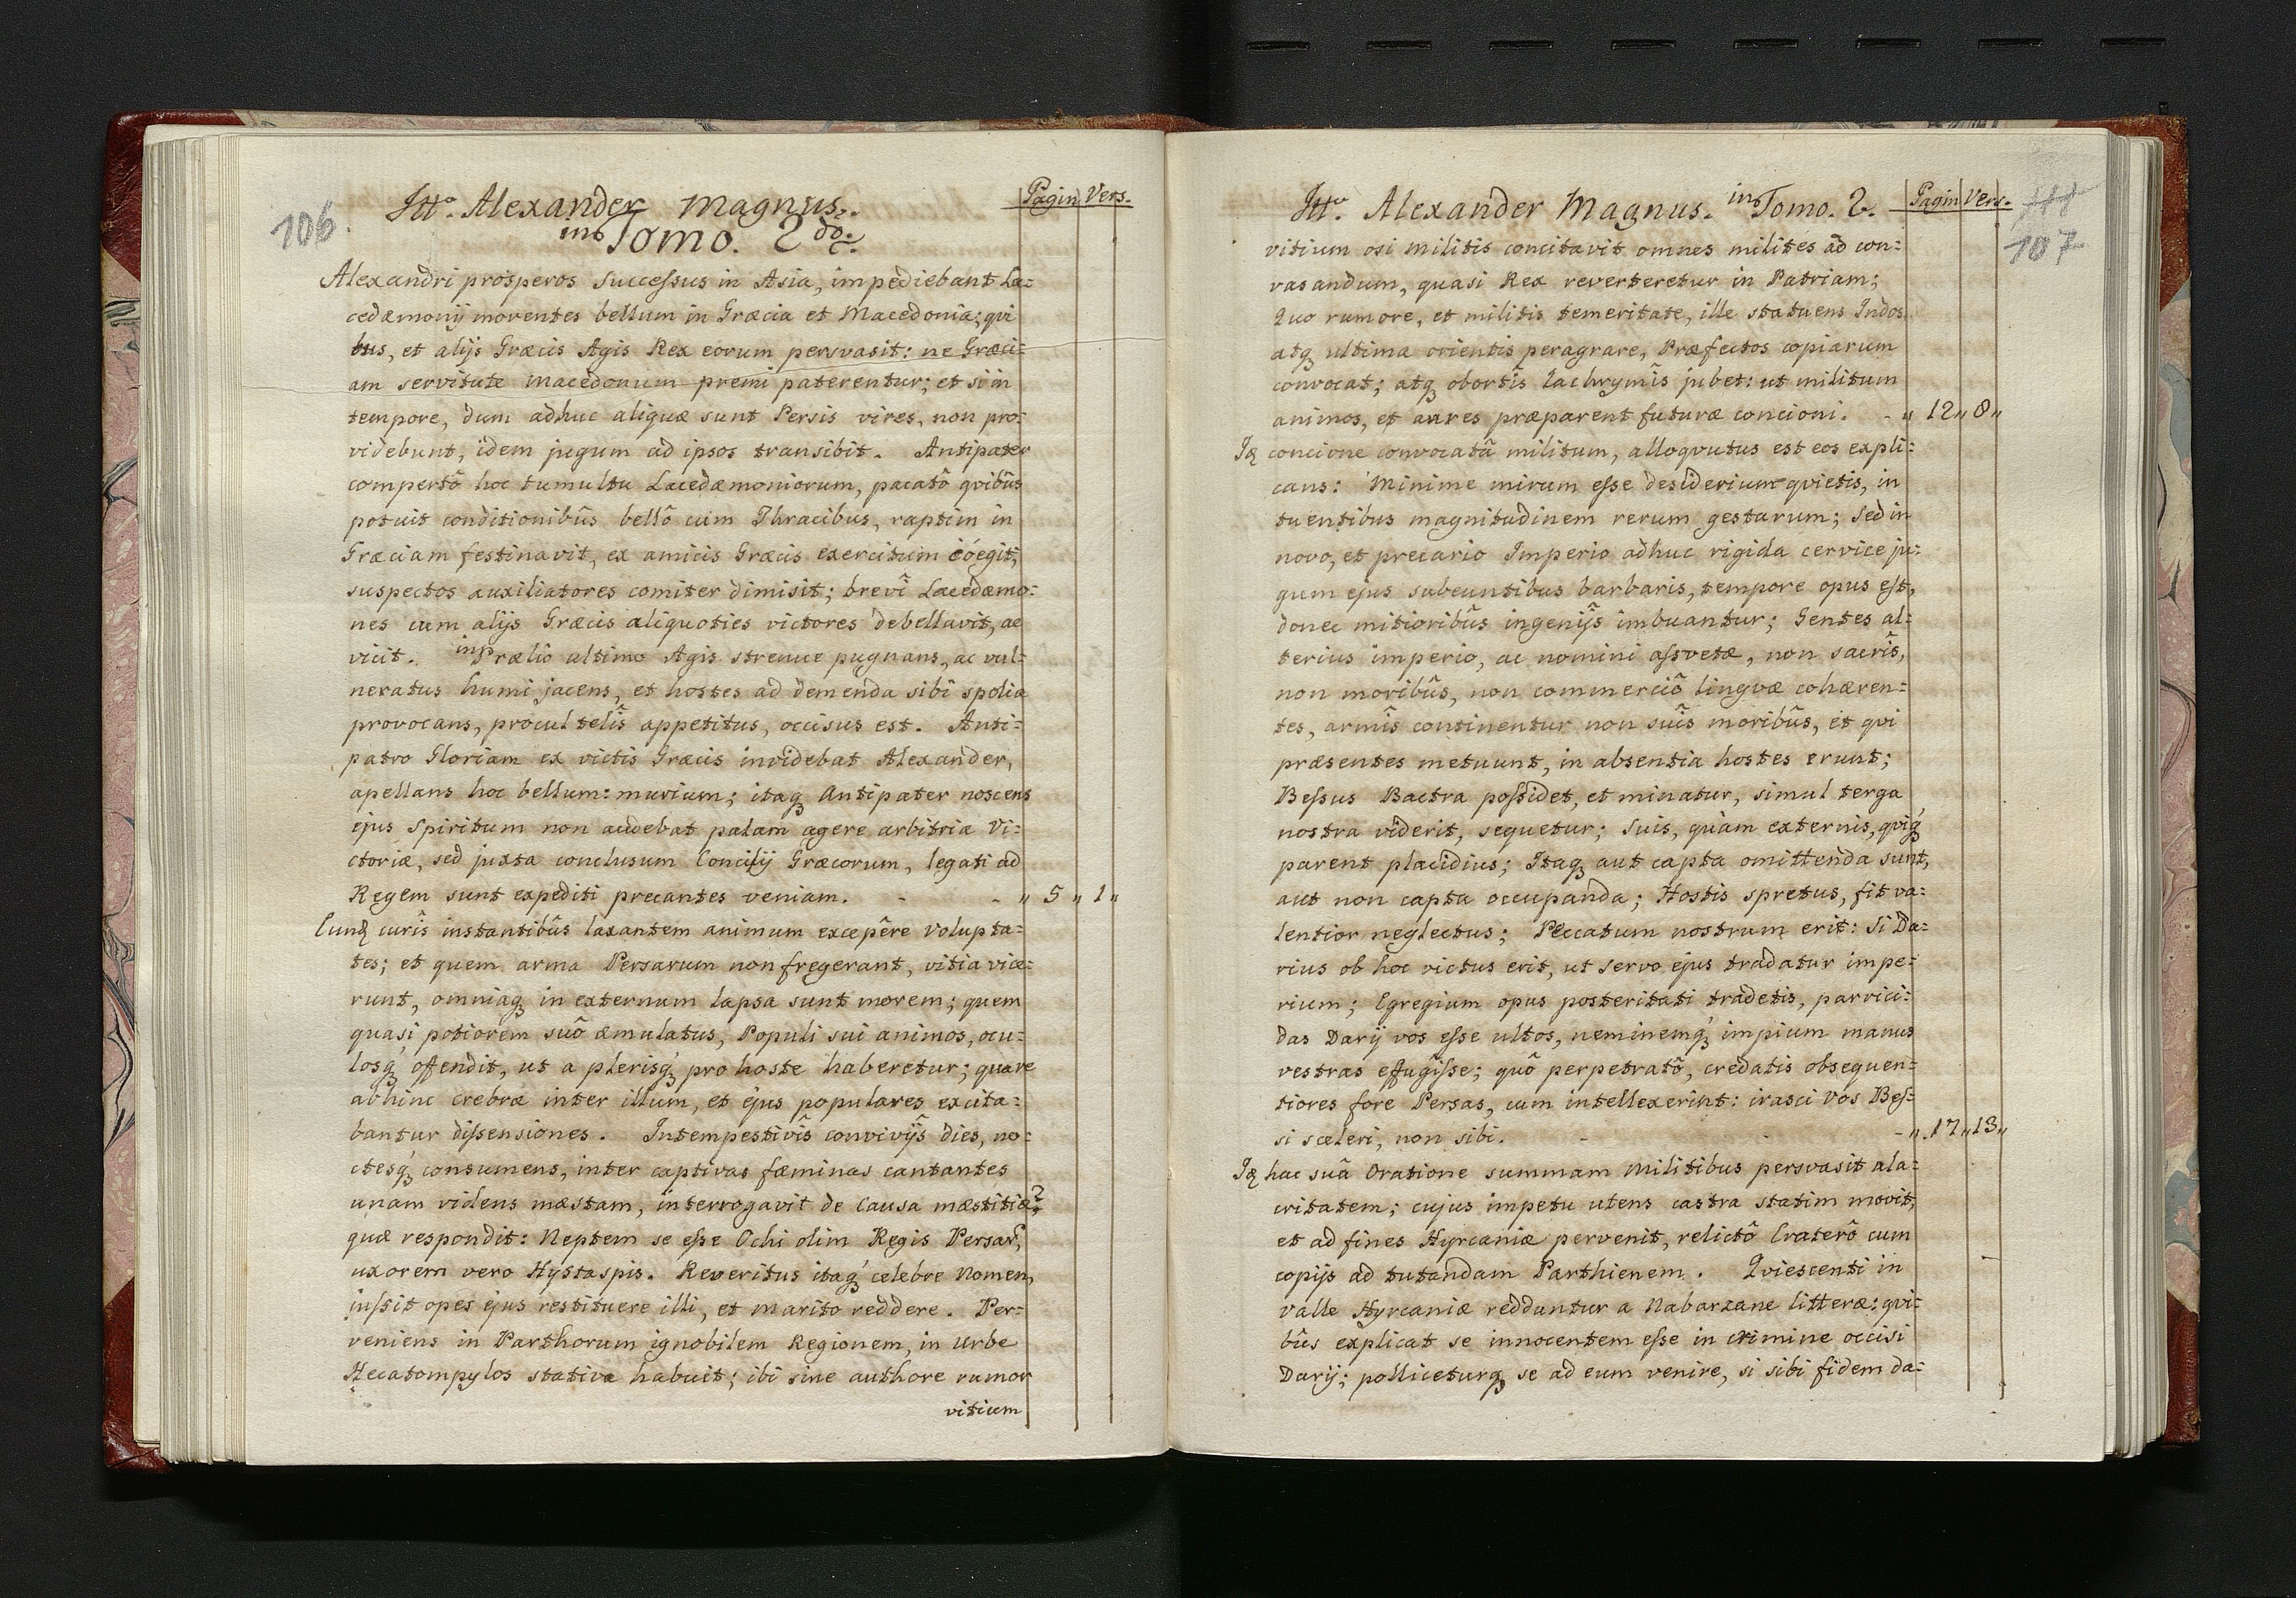 106.
Itt.o Alexander Magnus. Pagin Vers.
in Tomo. 2do.
Alexandri prosperos successus in Asia, impediebant La=
cedæmonij moventes bellum in Græcia et Macedonia; qvi
bus, et alijs Græcis Agis Rex eorum persvasit: ne Græci=
am servitute Macedonum premi paterentur; et si in
tempore, dum adhuc aliquæ sunt Persis vires, non pro:
videbunt, idem jugum ad ipsos transibit. Antipater
compertô hoc tumultu Lacedæmoniorum, pacatô qvibûs
potuit conditionibûs bellô cum Thracibus, raptim in
Græciam festinavit, ex amicis Græcis exercitum coegit;
suspectos auxiliatores comiter dimisit; brevî Lacedæmo:
nes cum alijs Græcis aliquoties victores debellavit, ac
vicit. in Prælio ultimo Agis strenue pugnans, ac vul=
neratus humi jacens, et hostes ad demenda sibi spolia
provocans, procul telîs appetitus, occisus est. Anti=
patro Gloriam ex victis Græcis invidebat Alexander,
apellans hoc bellum: murium; itaq Antipater noscens
ejus Spiritum non audebat palam agere arbitria Vi=
ctoriæ, sed juxta conclusum Concilij Græcorum, legati ad
Regem sunt expediti precantes veniam. - - „ 5 „ 1 „
Cunq curîs instantibûs laxantem animum excepêre volupta=
tes; et quem arma Persarum non fregerant, vitia vice=
runt, omniaq in externum lapsa sunt morem; quem
quasi potiorem suô æmulatus, Populi sui animos, ocu=
losq offendit, ut a plerisq pro hoste haberetur; quare
abhinc crebræ inter illum, et ejus populares excita=
bantur dissensiones. Intempestivîs convivijs dies, no=
ctesq consumens, inter captivas fæminas cantantes
unam videns mæstam, interrogavit de Causa mæstitiæ?
quæ respondit: Neptem se esse Ochi olim Regis Persar,
uxorem vero Hystaspis. Reveritus itaq celebre Nomen,
jussit opes ejus restituere illi, et marito reddere. Per=
veniens in Parthorum ignobilem Regionem, in Urbe
Hecatompylos stativa habuit; ibi sine authore rumor
vitium
Itt.o Alexander Magnus. in Tomo. 2. Pagin Vers.
107
vitium osi militis concitavit omnes milites ad con=
vasandum, quasi Rex reverteretur in Patriam;
Quo rumore, et militis temeritate, ille statuens Indos
atq ultima orientis peragrare, Præfectos copiarum
convocat; atq obortîs Lachrymîs jubet: ut militum
animos, et aures præparent futuræ concioni. - „ 12 „ 8 „
Iq concione convocatâ militum, alloqvutus est eos expli=
cans: Minime mirum esse desiderium qvietis, in
tuentibus magnitudinem rerum gestarum; Sed in
novo, et precario Imperio adhuc rigida cervice ju=
gum ejus subeuntibus barbaris, tempore opus est,
donec mitioribûs ingenijs imbuantur; Gentes al=
terius imperio, ac nomini assvetæ, non sacrîs,
non moribûs, non commerciô lingvæ cohæren=
tes, armîs continentur non suîs moribûs, et qvi
præsentes metuunt, in absentia hostes erunt;
Bessus Bactra possidet, et minatur, simul terga
nostra viderit, sequetur; Suis, quàm externis, qviq
parent placidius; Itaq aut capta omittenda sunt,
aut non capta occupanda; Hostis spretus, fit va=
lentior neglectus; Peccatum nostrum erit: Si Da=
rius ob hoc victus erit, ut servo ejus tradatur impe=
rium; Egregium opus posteritati tradetis, parrici=
das Darij vos esse ultos, neminemq impium manus
vestras effugisse; quô perpetratô, credatis obsequen=
tiores fore Persas, cum intellexerint: irasci vos Bes=
si sceleri, non sibi. - - - „ 17 „ 13 „
Iq hac suâ Oratione summam militibus persvasit ala=
critatem; cujus impetu utens castra statim movit,
et ad fines Hyrcaniæ pervenit, relictô Craterô cum
copijs ad tutandam Parthienem. Qviescenti in
valle Hyrcaniæ redduntur a Nabarzane litteræ: qvi=
bûs explicat se innocentem esse in crimine occisi
Darij; polliceturq se ad eum venire, si sibi fidem da=